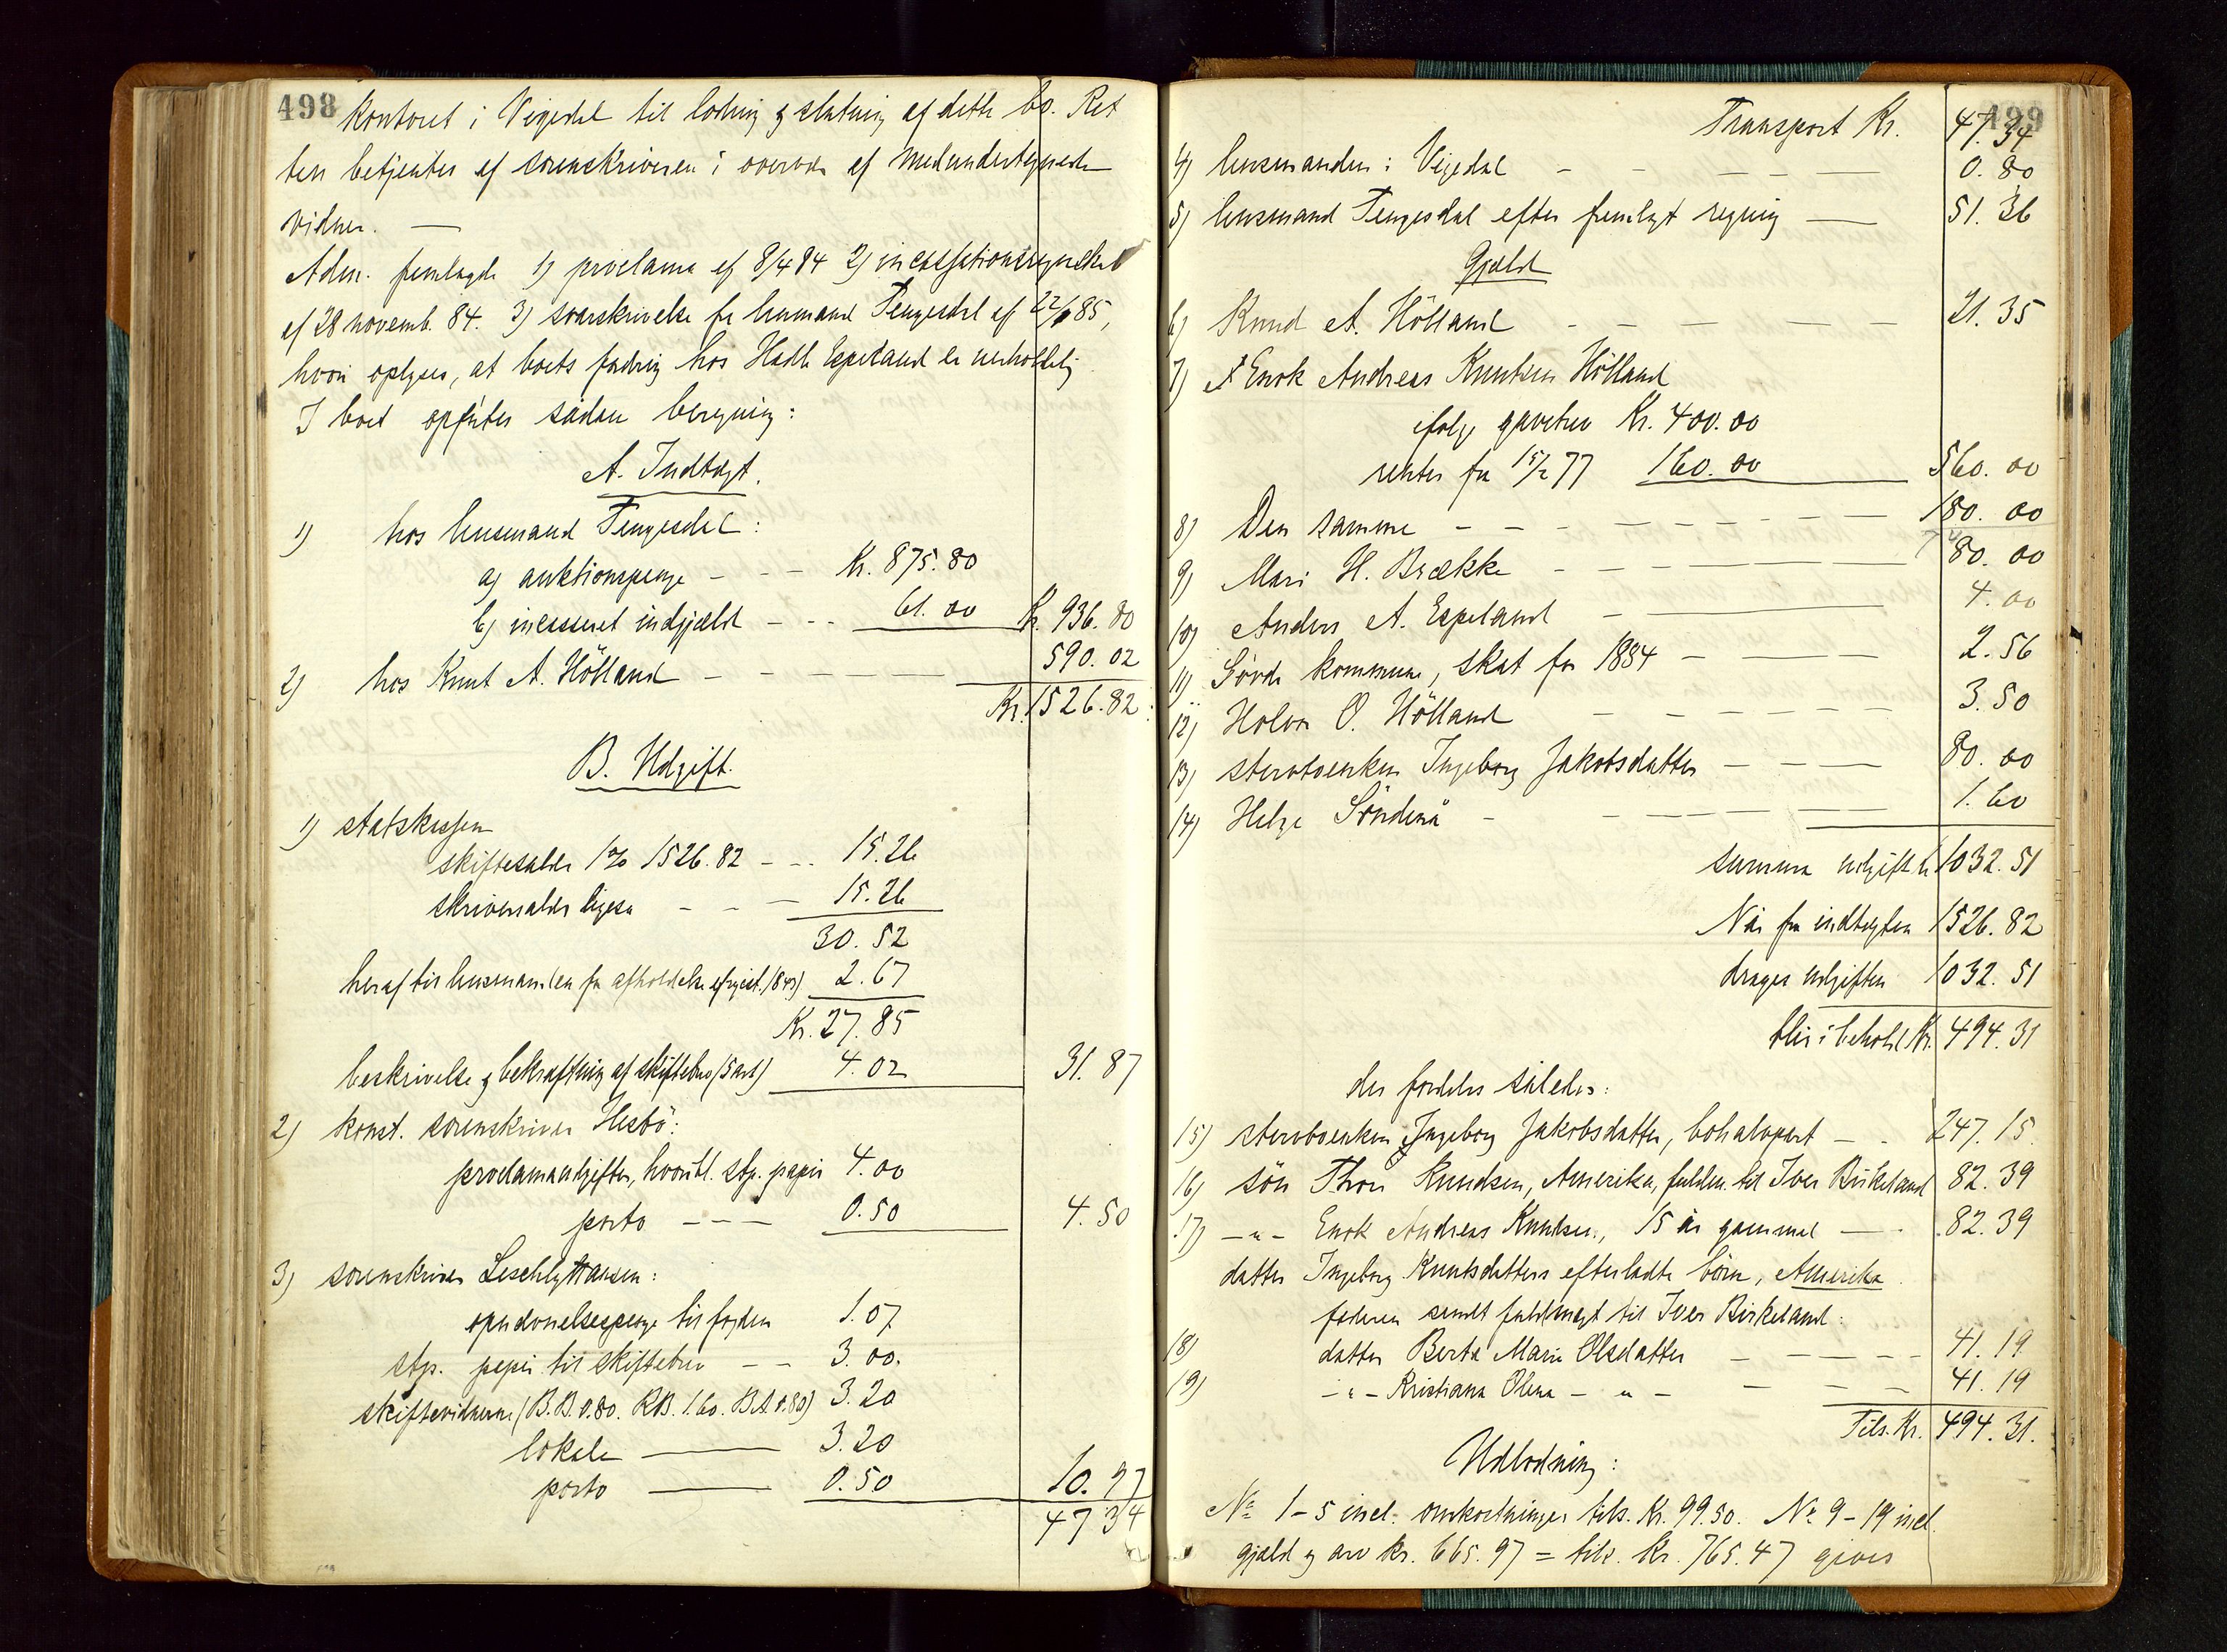 498
Kontoret i Vigedal til lodning og slutning af dette bo. Ret
ten betjentes af sorenskriveren i overvær af medundertegnede
vidner. —
Adm. fremlagde 1) proclama af 8/4 84 2) incassationsregnskab
af 28 novemb. 84. 3) svarskrivelse fra lensmand Tengesdal af 22/ 85,
hvori oplyses, at boets fordring hos Espeland er uerholdelig
I boet opførtes sådan beregning:
A. Indtægt.
1) hos lensmand Tengesdal:
a) auktionspenge - - - Kr. 875.80
b) incasseret indgjæld - - - 61.00 Kr. 936.80
2) hos Knut A. Hölland - - - - - 590.02
Kr. 1526.82
B. Udgift.
1) statskassen
skiftesalær 1% 1526.82 - - - 15.26
skriversalær ligeså - - - 15.26
30.52
heraf til lensmanden for afholdelse af regist. 2.67
Kr. 27.85
beskrivelse og bekræftning af skiftebrev (5 ark) 4.02 31.87
2) konst. sorenskriver Hesbö:
proclamaudgifter, hvoribl. stp. papir 4.00
porto - - - 0.50 4.50
3) sorenskriver
til fogden 1.07
stp. papir til skiftebrev - - 3.00.
skiftevidnerne (B.B. 0.80. R.B. 1.60. B.A. 0.80) 3.20
lokale — 3.20
porto — 0.50 10.97
47 34
499
Transport Kr. 47.34
4) lensmanden i Vigedal - - - - - 0.80
5) lensmand Tengesdal efter fremlagt regning — 51.36
Gjæld
6) Knud A. Hölland - - - - - 21.35
7) Enok Andreas Knutsen Hölland
ifølge gavebrev Kr. 400.00
renter fra 15/2 77 160.00 560.00
8) Den samme - - - - - - - 180.00
9) Mari H. Brække - - - - - 80.00
10) Anders A. Espeland - — 4.00
11) Søvde kommune, skat for 1884 - — 2.56
12) Holvor O. Hölland - - - - - 3.50
13) stervboenken Ingeborg Jakobsdatter - - - 80.00
14) Helge Söndenå - - - - - 1.60
summa udgift kr 1032.51
Når fra indtægten 1526.82
drages udgiften 1032.51
blir i behold Kr. 494.31
der fordeles således:
15) stervboenken Ingeborg Jakobsdatter, bohalvpart - - 247.15
16) sön Thor Knudsen, Amerika, fuldm. til Iver Birkeland 82.39
17) - " - Enok Andreas Knutsen, 15 år gammel - - 82.39
datter Ingeborg Knutsdatters efterladte børn, Amerika
faderen sendt fuldmagt til Iver Birkeland:
18) datter Berta Marie Olsdatter - - - - - 41.19
19) - " - Kristiana Olena - " - - - - 41.19
Tils. Kr. 494.31.
Udlodning:
No 1-5 incl. omkostninger tils. Kr. 99.50. No 9-19 incl.
gjæld og arv kr. 665.97 = tils. Kr. 765.47 gives